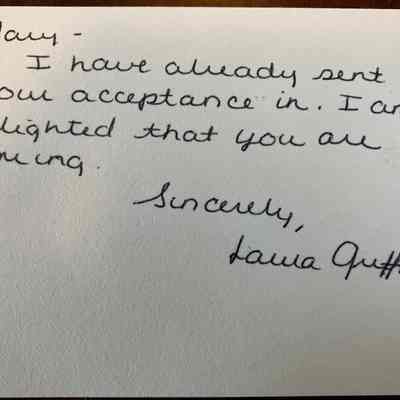 Mary -
I have already sent
your acceptance in. I am
delighted that you are
coming.
Sincerely,
Laura